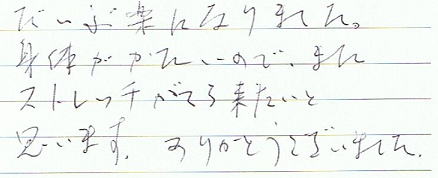 だいぶ楽になりました。
身体がかたいので、また
ストレッチがてら来たいと
思います。ありがとうございました。